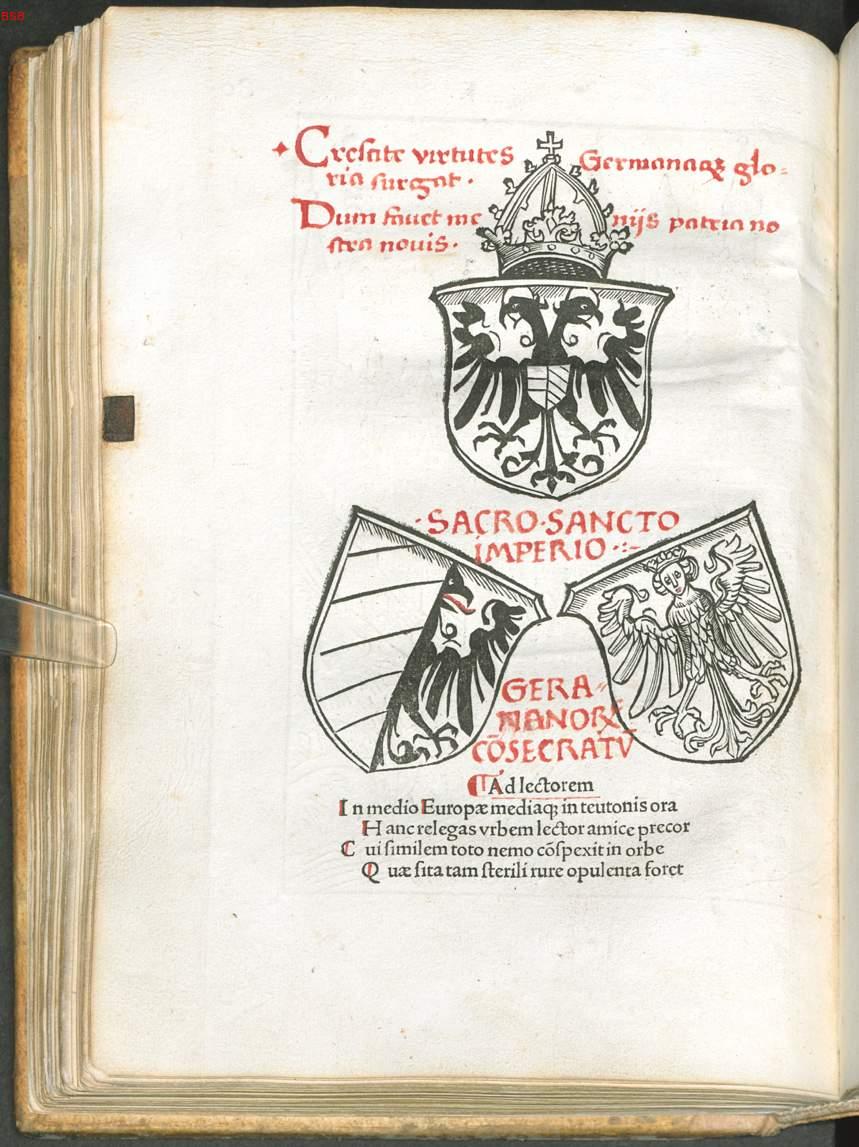 BSB
Crescite virtutes Germanaqꝫ glo-
ria surgat.
Dum fauet me nijs patria no
stra nouis.
·SACRO·SANCTO
IMPERIO·:-
GERA-
MANORŨ
CŌSECRATV̄
¶Ad lectorem
In medio Europæ mediaqꝫ in teutonis ora
Hanc relegas vrbem lector amice precor
Cui similem toto nemo cōspexit in orbe
Quæ sita tam sterili rure opulenta foret